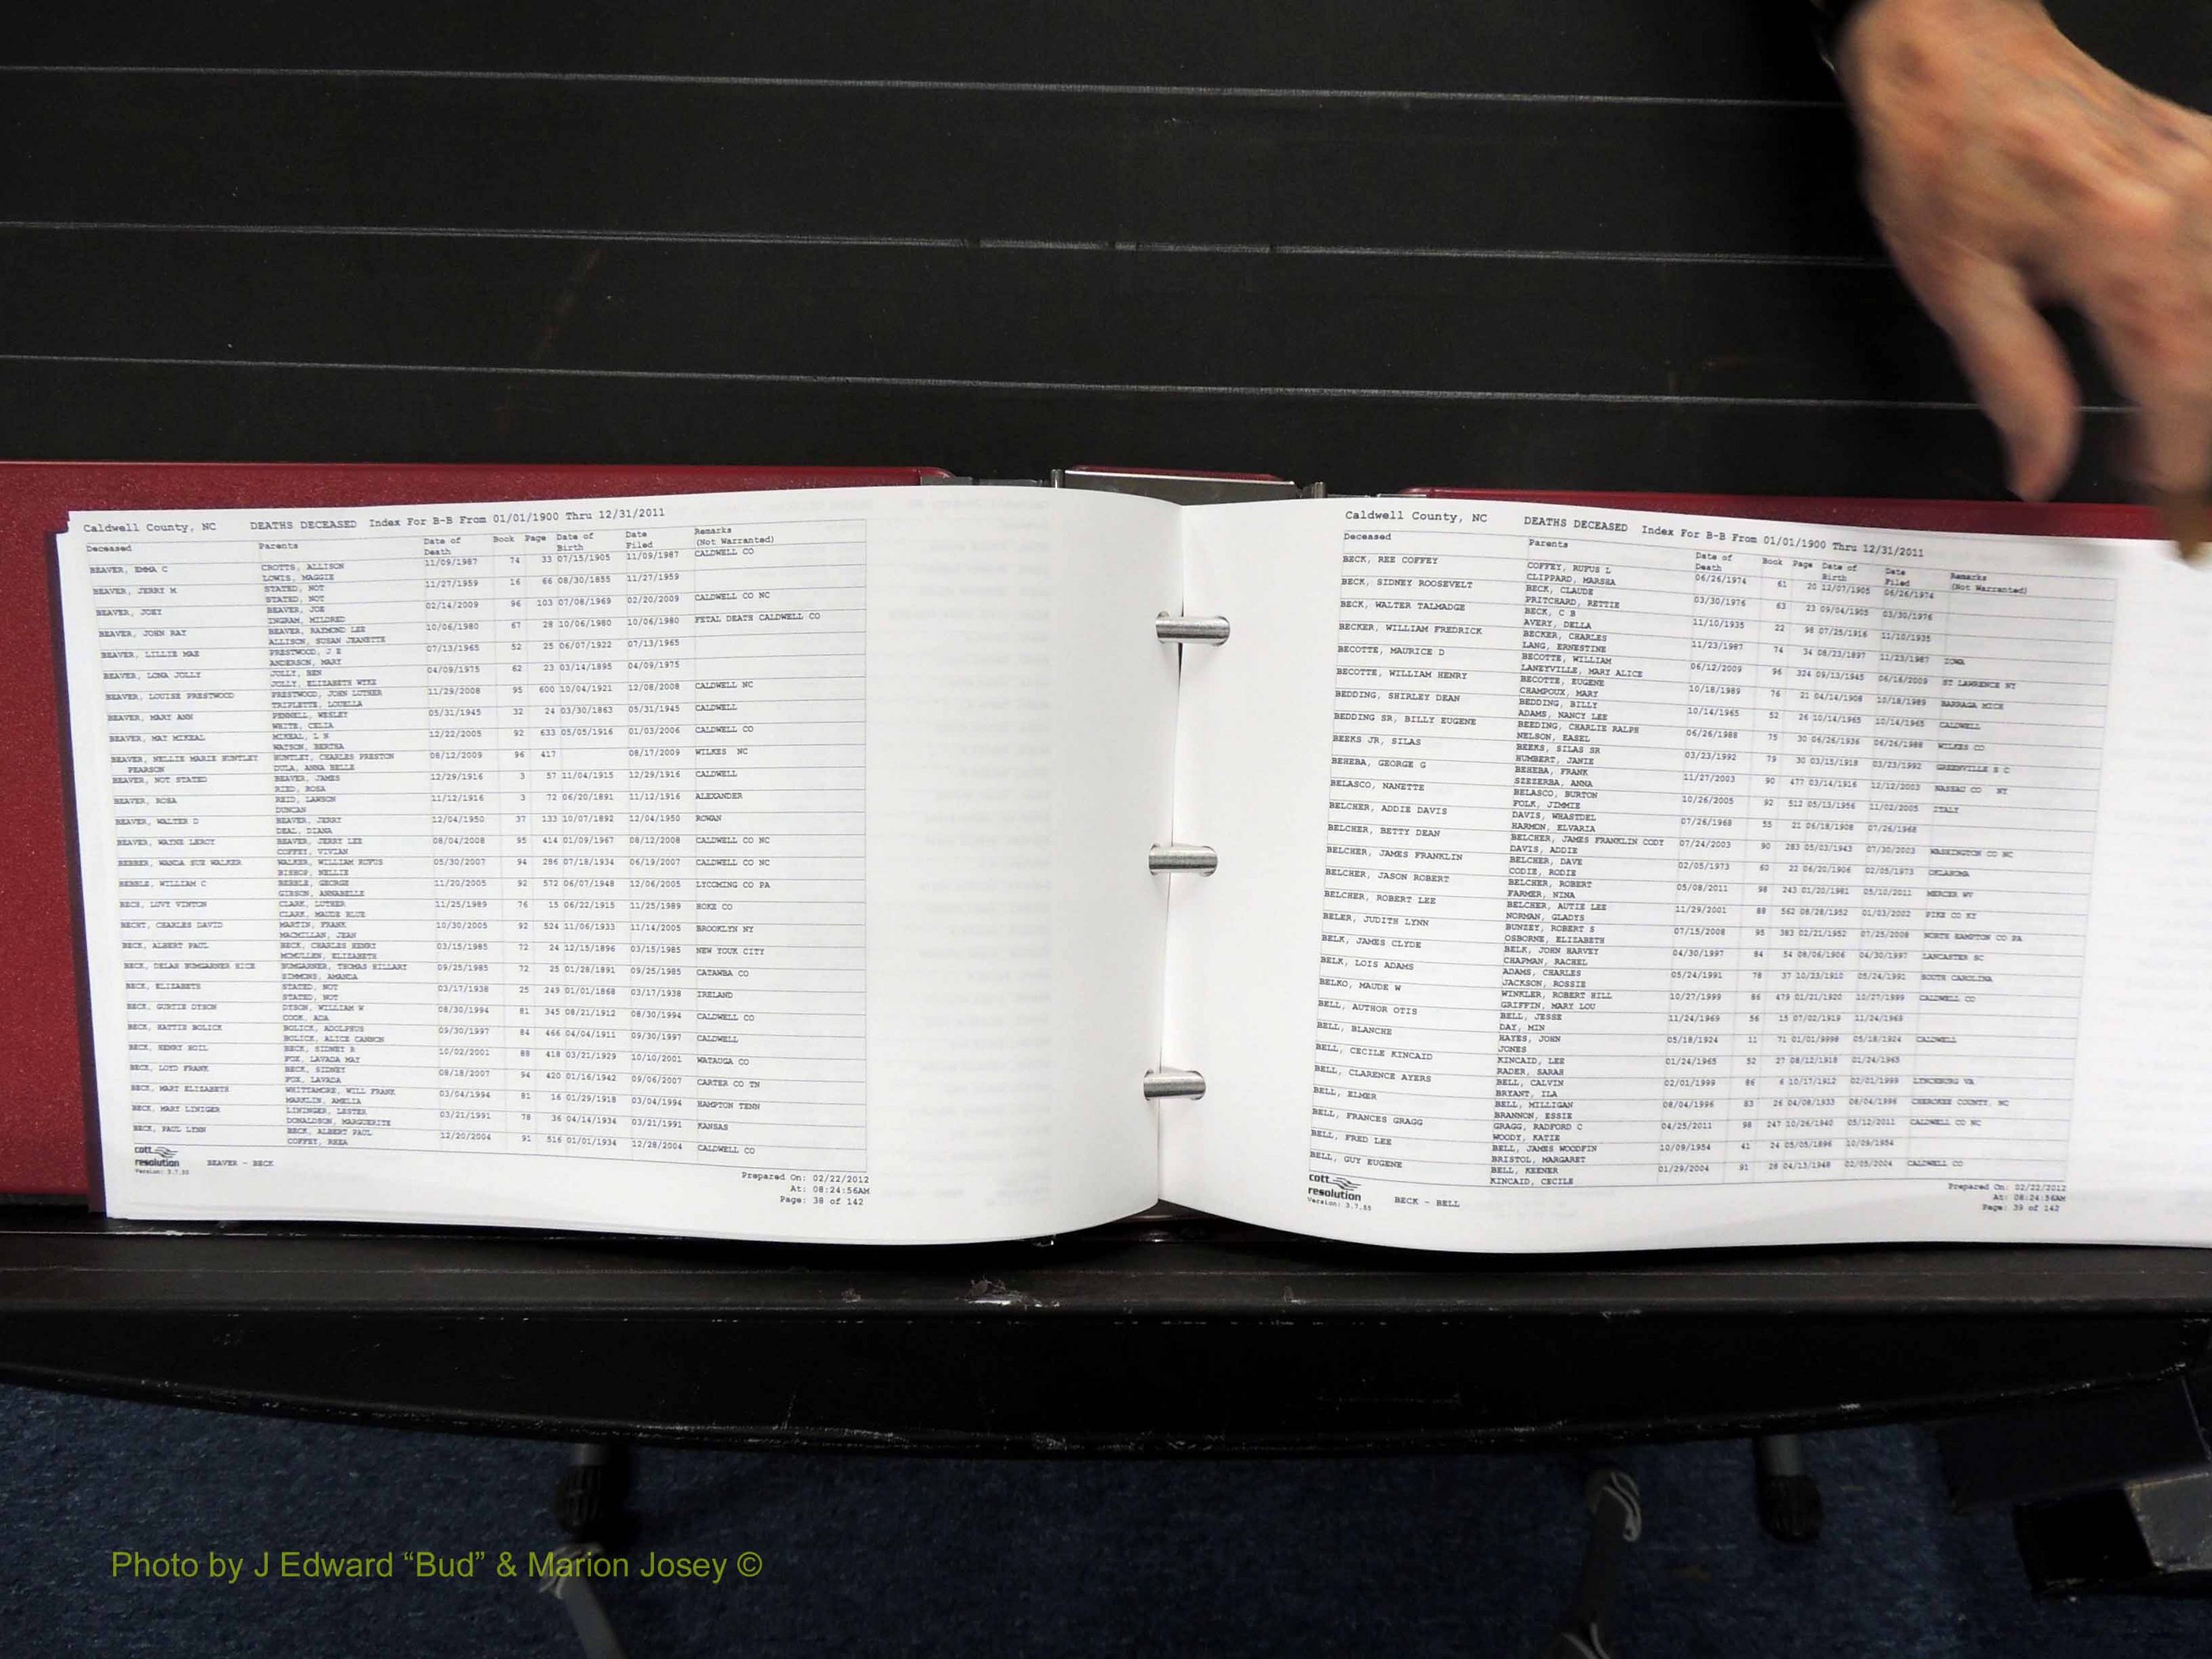 Caldwell County, NC DEATHS DECEASED Index For B-B From 01/01/1900 Thru 12/31/2011
Deceased Parents Date of Death Book Page Date of Birth Date Filed Remarks (Not Warranted)
BEAVER, EMMA C CROTTS, ALLISON 11/09/1987 74 33 07/15/1905 11/09/1987 CALDWELL CO
LOWIS, MAGGIE
BEAVER, JERRY M STATED, NOT 11/27/1959 16 66 08/30/1855 11/27/1959
STATED, NOT
BEAVER, JOEY BEAVER, JOE 02/14/2009 96 103 07/08/1969 02/20/2009 CALDWELL CO NC
INGRAM, MILDRED
BEAVER, JOHN RAY BEAVER, RAIMOND LEE 10/06/1980 67 28 10/06/1980 10/06/1980 FETAL DEATH CALDWELL CO
ALLISON, SUSAN JEANETTE
BEAVER, LILLIE MAE PRESTWOOD, J E 07/13/1965 52 25 06/07/1922 07/13/1965
ANDERSON, MARY
BEAVER, LONA JOLLY JOLLY, BEN 04/09/1975 62 23 03/14/1895 04/09/1975
JOLLY, ELIZABETH WIKE
BEAVER, LOUISE PRESTWOOD PRESTWOOD, JOHN LUTHER 11/29/2008 95 600 10/04/1921 12/08/2008 CALDWELL NC
TRIPLETTE, LOUELLA
BEAVER, MARY ANN PENNELL, WESLEY 05/31/1945 32 24 03/30/1863 05/31/1945 CALDWELL
WHITE, CELIA
BEAVER, MAY MIKEAL MIKEAL, L N 12/22/2005 92 633 05/05/1916 01/03/2006 CALDWELL CO
WATSON, BERTHA
BEAVER, NELLIE MARIE HUNTLEY HUNTLEY, CHARLES PRESTON 08/12/2009 96 417 08/17/2009 WILKES NC
PEARSON DULA, ANNA BELLE
BEAVER, NOT STATED BEAVER, JAMES 12/29/1916 3 57 11/04/1915 12/29/1916 CALDWELL
RIED, ROSA
BEAVER, ROSA REID, LAWSON 11/12/1916 3 72 06/20/1891 11/12/1916 ALEXANDER
DUNCAN
BEAVER, WALTER D BEAVER, JERRY 12/04/1950 37 133 10/07/1892 12/04/1950 ROWAN
DEAL, DIANA
BEAVER, WAYNE LEROY BEAVER, JERRY LEE 08/04/2008 95 414 01/09/1967 08/12/2008 CALDWELL CO NC
COFFEY, VIVIAN
BEBBER, WANDA SUE WALKER WALKER, WILLIAM RUFUS 05/30/2007 94 286 07/18/1934 06/19/2007 CALDWELL CO NC
BISHOP, NELLIE
BEBBLE, WILLIAM C BEBBLE, GEORGE 11/20/2005 92 572 06/07/1948 12/06/2005 LYCOMING CO PA
GIBSON, ANNABELLE
BECH, LUVY VINTON CLARK, LUTHER 11/25/1989 76 15 06/22/1915 11/25/1989 HOKE CO
CLARK, MAUDE BLUE
BECHT, CHARLES DAVID MARTIN, FRANK 10/30/2005 92 524 11/06/1933 11/14/2005 BROOKLYN NY
MACMILLAN, JEAN
BECK, ALBERT PAUL BECK, CHARLES HENRY 03/15/1985 72 24 12/15/1896 03/15/1985 NEW YOUK CITY
MCMULLEN, ELIZABETH
BECK, DELAH BUMGARNER HICE BUMGARNER, THOMAS HILLARY 09/25/1985 72 25 01/28/1891 09/25/1985 CATAWBA CO
SIMMONS, AMANDA
BECK, ELIZABETH STATED, NOT 03/17/1938 25 249 01/01/1868 03/17/1938 IRELAND
STATED, NOT
BECK, GURTIE DYSON DYSON, WILLIAM W 08/30/1994 81 345 08/21/1912 08/30/1994 CALDWELL CO
COOK, ADA
BECK, HATTIE BOLICK BOLICK, ADOLPHUS 09/30/1997 84 466 04/04/1911 09/30/1997 CALDWELL
BOLICK, ALICE CANNON
BECK, HENRY HOIL BECK, SIDNEY R 10/02/2001 88 418 03/21/1929 10/10/2001 WATAUGA CO
FOX, LAVADA MAY
BECK, LOYD FRANK BECK, SIDNEY 08/18/2007 94 420 01/16/1942 09/06/2007 CARTER CO TN
FOX, LAVADA
BECK, MARY ELIZABETH WHITTAMORE, WILL FRANK 03/04/1994 81 16 01/29/1918 03/04/1994 HAMPTON TENN
MARKLIN, AMELIA
BECK, MARY LINIGER LININGER, LESTER 03/21/1991 78 36 04/14/1934 03/21/1991 KANSAS
DONALDSON, MARGUERITE
BECK, PAUL LYNN BECK, ALBERT PAUL 12/20/2004 91 516 01/01/1934 12/28/2004 CALDWELL CO
COFFEY, RHEA
cott
resolution BEAVER - BECK
Version: 3.7.55
Prepared On: 02/22/2012
At: 08:24:56AM
Page: 38 of 142
Caldwell County, NC DEATHS DECEASED Index For B-B From 01/01/1900 Thru 12/31/2011
Deceased Parents Date of Death Book Page Date of Birth Date Filed Remarks (Not Warranted)
BECK, REE COFFEY COFFEY, RUFUS L 06/26/1974 61 20 12/07/1905 06/26/1974
CLIPPARD, MARSHA
BECK, SIDNEY ROOSEVELT BECK, CLAUDE 03/30/1976 63 23 09/04/1905 03/30/1976
PRITCHARD, RETTIE
BECK, WALTER TALMADGE BECK, C B 11/10/1935 22 98 07/25/1916 11/10/1935
AVERY, DELLA
BECKER, WILLIAM FREDRICK BECKER, CHARLES 11/23/1987 74 34 08/23/1897 11/23/1987 IOWA
LANG, ERNESTINE
BECOTTE, MAURICE D BECOTTE, WILLIAM 06/12/2009 96 324 09/13/1945 06/16/2009 ST LAWRENCE NY
LANEYVILLE, MARY ALICE
BECOTTE, WILLIAM HENRY BECOTTE, EUGENE 10/18/1989 76 21 04/14/1908 10/18/1989 BARRAGA MICH
CHAMPOUX, MARY
BEDDING, SHIRLEY DEAN BEDDING, BILLY 10/14/1965 52 26 10/14/1965 10/14/1965 CALDWELL
ADAMS, NANCY LEE
BEDDING SR, BILLY EUGENE BEEDING, CHARLIE RALPH 06/26/1988 75 30 06/26/1936 06/26/1988 WILKES CO
NELSON, EASEL
BEEKS JR, SILAS BEEKS, SILAS SR 03/23/1992 79 30 03/15/1918 03/23/1992 GREENVILLE S C
HUMBERT, JANIE
BEHEBA, GEORGE G BEHEBA, FRANK 11/27/2003 90 477 03/14/1916 12/12/2003 NASSAU CO NY
SZEZERBA, ANNA
BELASCO, NANETTE BELASCO, BURTON 10/26/2005 92 512 05/13/1956 11/02/2005 ITALY
FOLK, JIMMIE
BELCHER, ADDIE DAVIS DAVIS, WHASTDEL 07/26/1968 55 21 06/18/1908 07/26/1968
HARMON, ELVARIA
BELCHER, BETTY DEAN BELCHER, JAMES FRANKLIN CODY 07/24/2003 90 283 05/03/1943 07/30/2003 WASHINGTON CO NC
DAVIS, ADDIE
BELCHER, JAMES FRANKLIN BELCHER, DAVE 02/05/1973 60 22 06/20/1906 02/05/1973 OKLAHOMA
CODIE, RODIE
BELCHER, JASON ROBERT BELCHER, ROBERT 05/08/2011 98 243 01/20/1981 05/10/2011 MERCER WV
FARMER, NINA
BELCHER, ROBERT LEE BELCHER, AUTIE LEE 11/29/2001 88 562 08/28/1952 01/03/2002 PIKE CO KY
NORMAN, GLADYS
BELER, JUDITH LYNN BUNZEY, ROBERT S 07/15/2008 95 383 02/21/1952 07/25/2008 NORTH HAMPTON CO PA
OSBORNE, ELIZABETH
BELK, JAMES CLYDE BELK, JOHN HARVEY 04/30/1997 84 54 08/06/1906 04/30/1997 LANCASTER SC
CHAPMAN, RACHEL
BELK, LOIS ADAMS ADAMS, CHARLES 05/24/1991 78 37 10/23/1910 05/24/1991 SOUTH CAROLINA
JACKSON, ROSSIE
BELKO, MAUDE W WINKLER, ROBERT HILL 10/27/1999 86 479 01/21/1920 10/27/1999 CALDWELL CO
GRIFFIN, MARY LOU
BELL, AUTHOR OTIS BELL, JESSE 11/24/1969 56 15 07/02/1919 11/24/1969
DAY, MIN
BELL, BLANCHE HAYES, JOHN 05/18/1924 11 71 01/01/9998 05/18/1924 CALDWELL
JONES
BELL, CECILE KINCAID KINCAID, LEE 01/24/1965 52 27 08/12/1918 01/24/1965
RADER, SARAH
BELL, CLARENCE AYERS BELL, CALVIN 02/01/1999 86 6 10/17/1912 02/01/1999 LYNCHBURG VA
BRYANT, ILA
BELL, ELMER BELL, MILLIGAN 08/04/1996 83 26 04/08/1933 08/04/1996 CHEROKEE COUNTY, NC
BRANNON, ESSIE
BELL, FRANCES GRAGG GRAGG, RADFORD C 04/25/2011 98 247 10/26/1940 05/12/2011 CALDWELL CO NC
WOODY, KATIE
BELL, FRED LEE BELL, JAMES WOODFIN 10/09/1954 41 24 05/05/1896 10/09/1954
BRISTOL, MARGARET
BELL, GUY EUGENE BELL, KEENER 01/29/2004 91 28 04/13/1948 02/05/2004 CALDWELL CO
KINCAID, CECILE
cott
resolution BECK - BELL
Version: 3.7.55
Prepared On: 02/22/2012
At: 08:24:56AM
Page: 39 of 142
Photo by J Edward “Bud” & Marion Josey ©